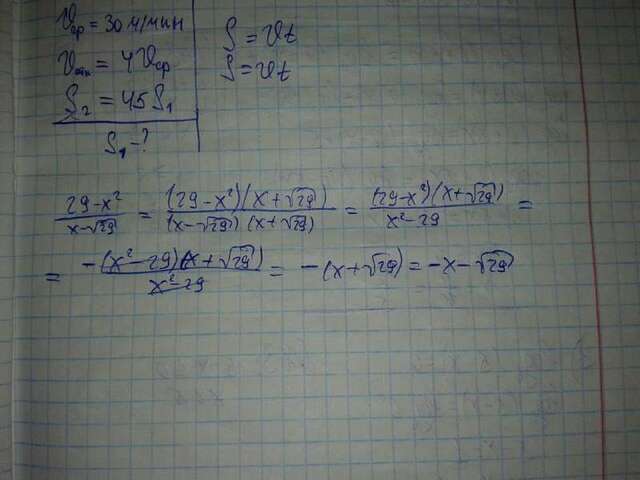 υср = 30 м/мин
υмин = 4υср
S₂ = 45S₁
S₁ - ?
S = υt
S = υt
(29-x²)/(x-√29) = ((29-x²)(x+√29))/((x-√29)(x+√29)) = ((29-x²)(x+√29))/(x²-29) =
= (-(x²-29)(x+√29))/(x²-29) = -(x+√29) = -x-√29